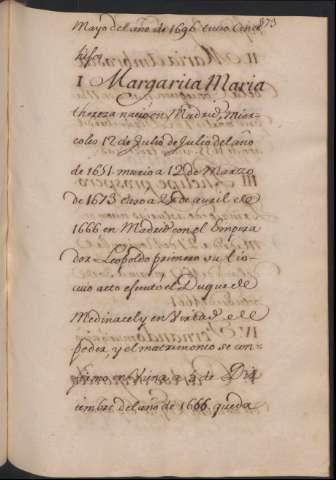 873
Mayo del año de 1696 tuvo cinco
hijos
I Margarita Maria
thereza nacio en Madrid, mier-
coles 12 de Julio de Julio del año
de 1651 murio a 12 de Marzo
de 1673 caso a 25 de avril de
1666 en Madrid con el Empera
dor Leopoldo primero su tio
cuio acto efectuo el Duque de
Medinacely en virtud de
poder, y el matrimonio se con-
firmo en Viena a 5 de Diz
iembre del año de 1666 queda